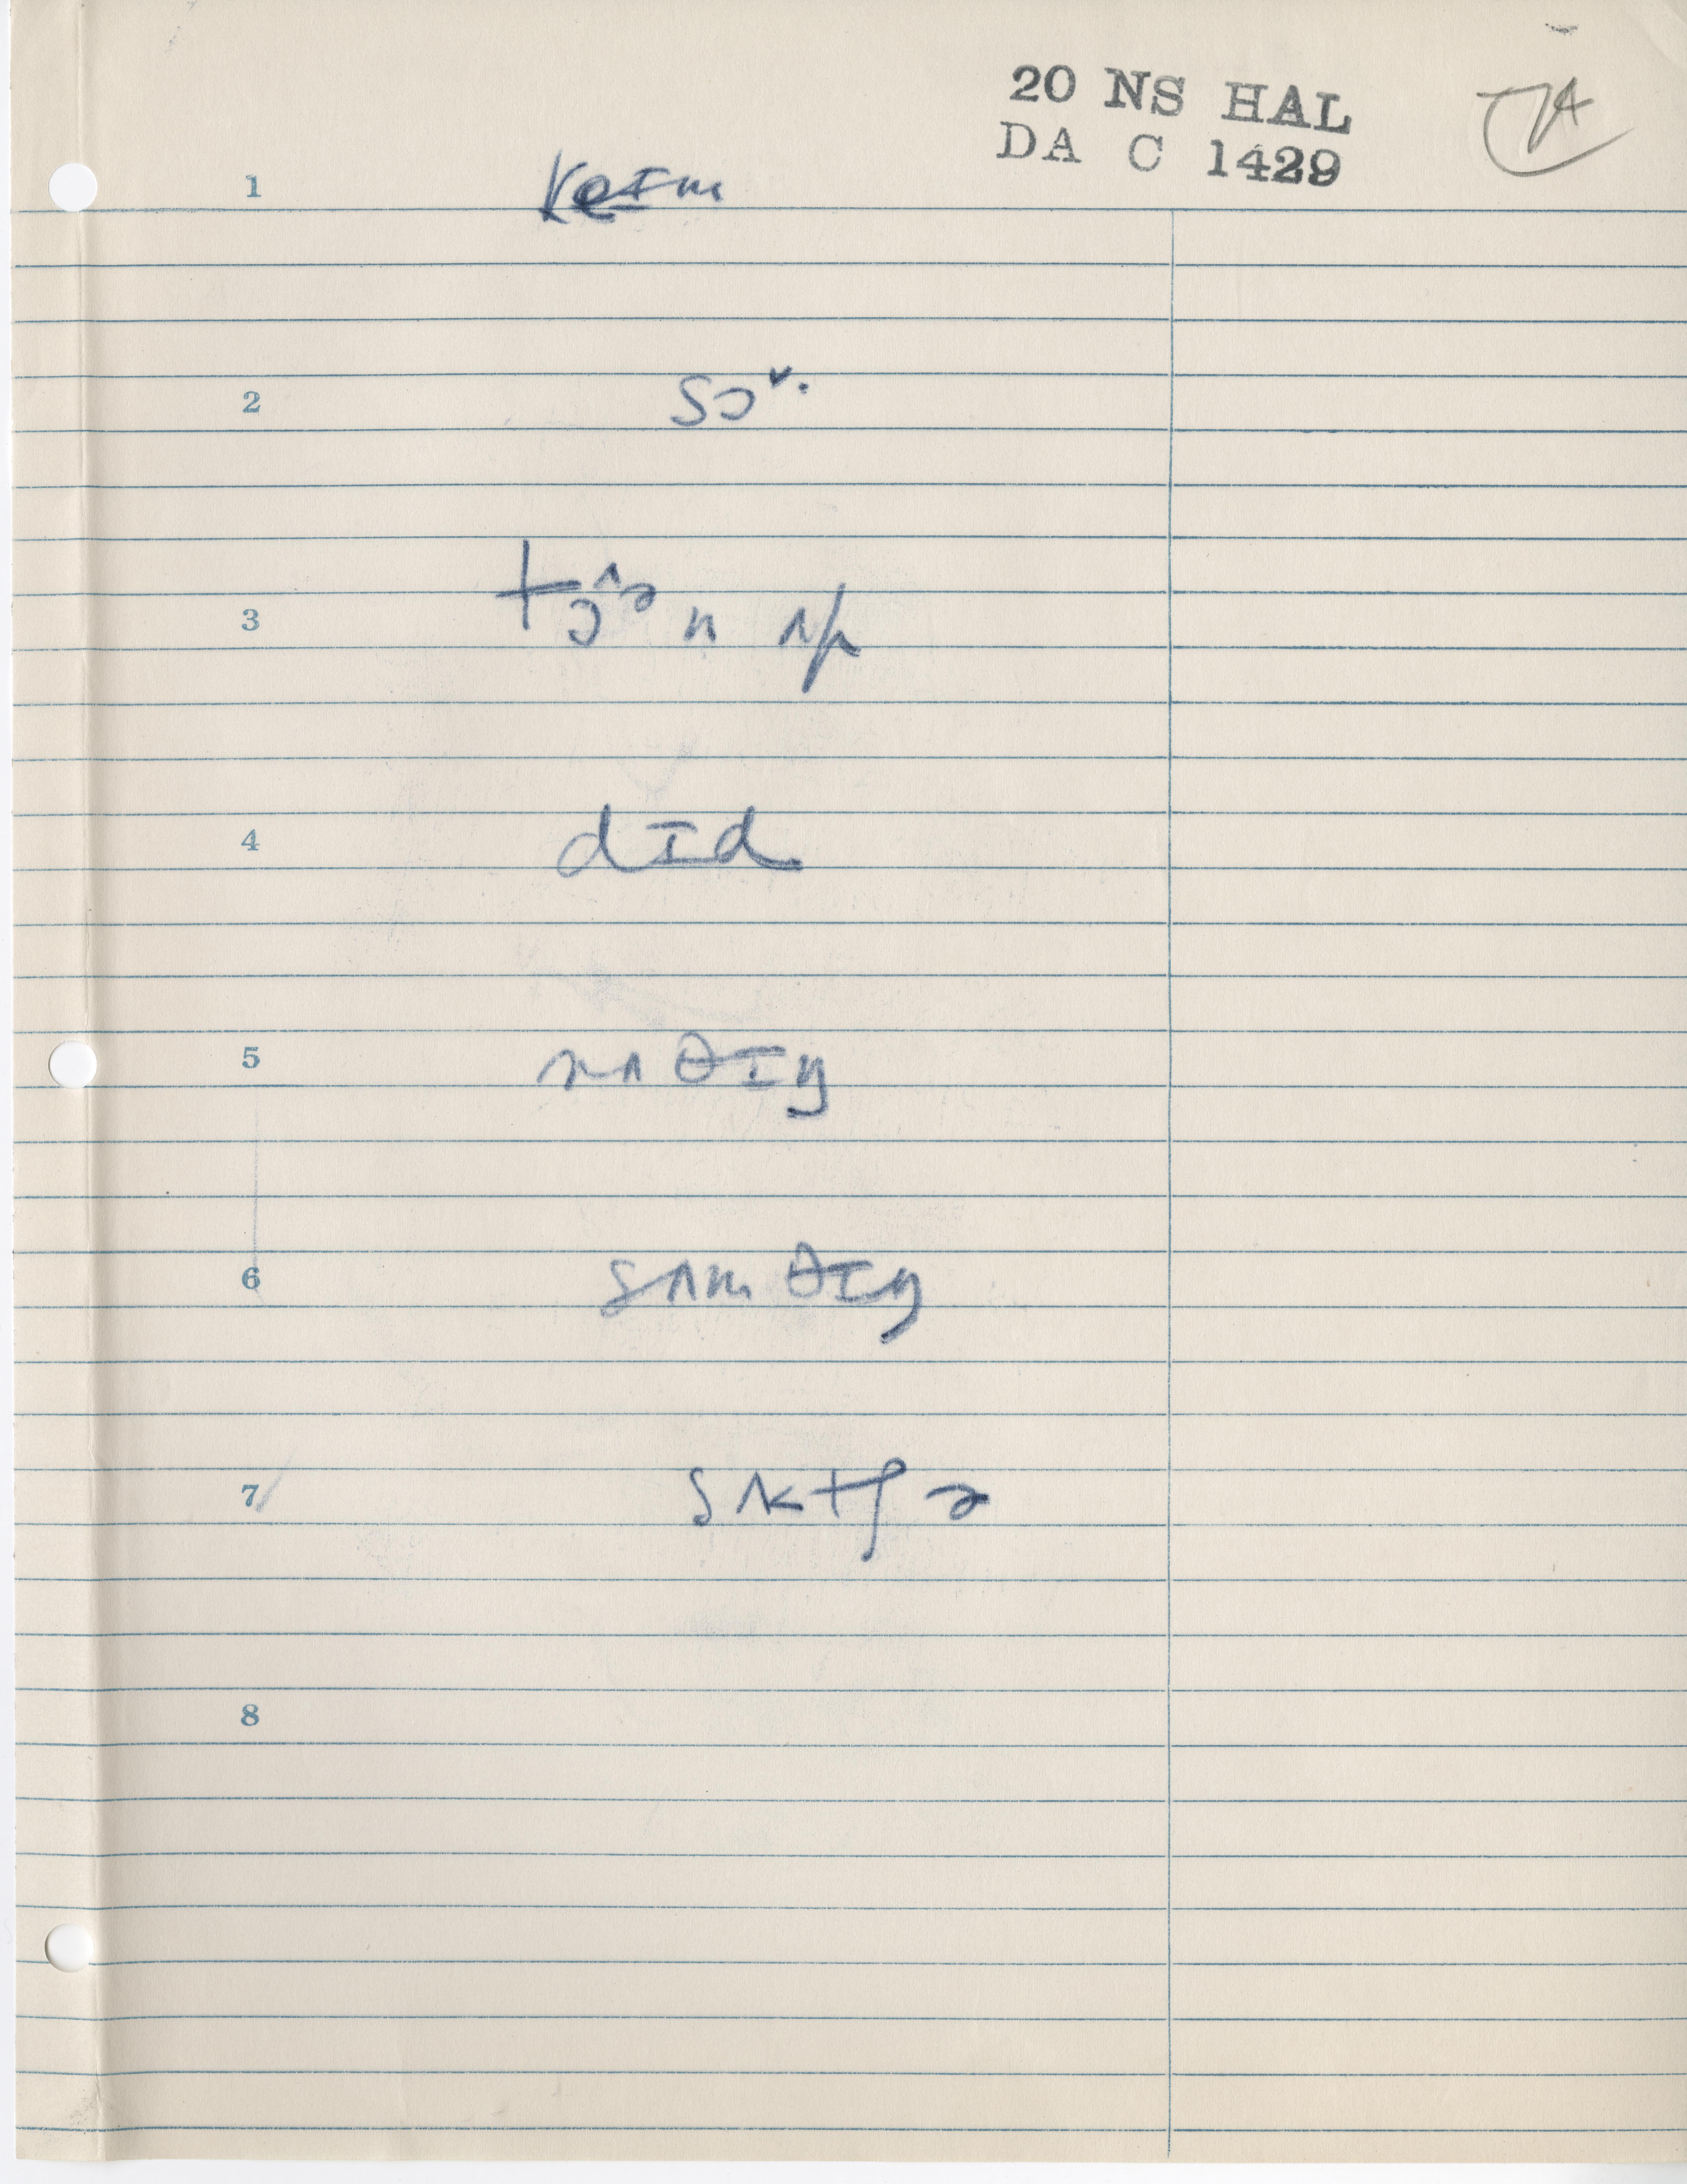 20 NS HAL
DA C 1429
1 keɪm
2 sɔˇ·
3 tɔ^ə n ʌp
4 dɪd
5 nʌθɪŋ
6 sʌmθɪŋ
7 sʌktʃə
8